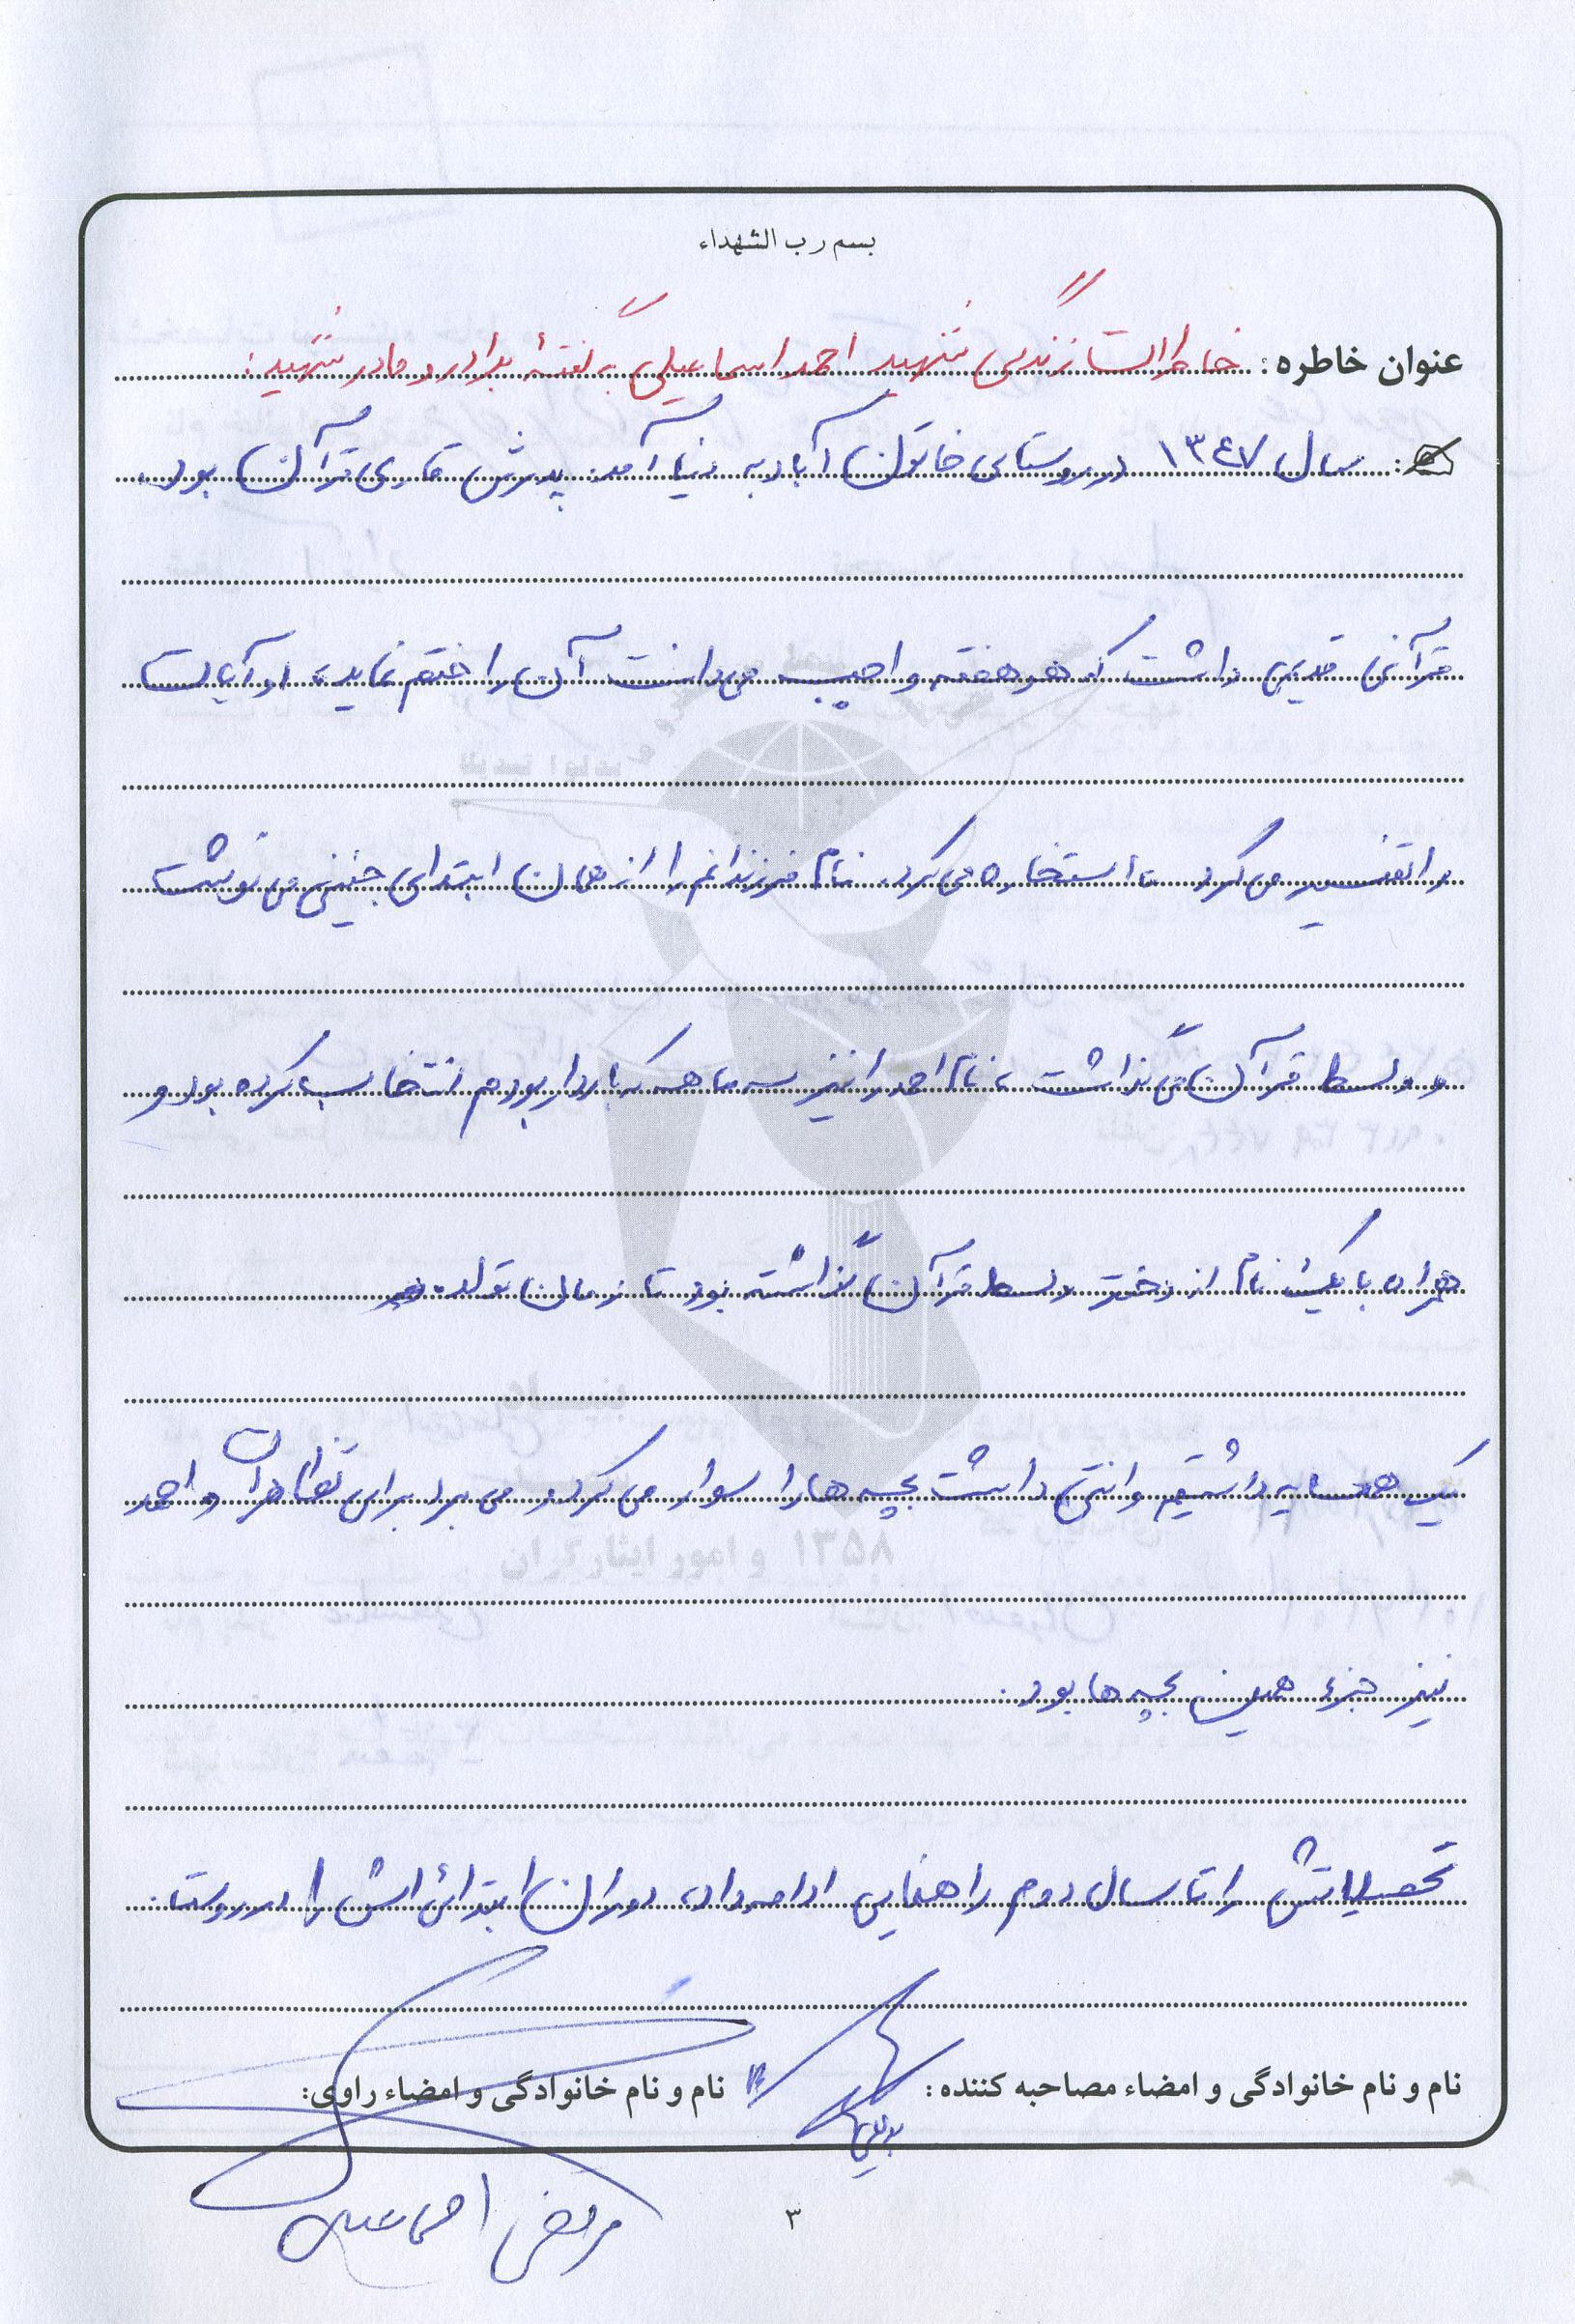 بسم رب الشهداء
عنوان خاطره: خاطرات زندگی شهید احمد اسماعیلی به گفتهٔ برادر و مادر شهید:
سال ۱۳۴۷ در روستای خاتون آباد به دنیا آمد. پدرش قاری قرآن بود.
قرآنی قدیمی داشت که هر هفته واجب می دانست آن را ختم نماید، او آیات
را تفسیر می کرد، استخاره می کرد. نام فرزندانم را از همان ابتدای جنینی می نوشت
و وسط قرآن می گذاشت، نام احمد را نیز سه ماهه که باردار بودم انتخاب کرده بود و
همراه با یک نام از دختر وسط قرآن گذاشته بود تا زمان تولد.
یک همسایه داشتیم وانتی داشت بچه ها را سوار می کرد و می برد برای تظاهرات و احمد
نیز جزء همین بچه ها بود.
تحصیلاتش را تا سال دوم راهنمایی ادامه داد، دوران ابتدائی اش را در روستا.
نام و نام خانوادگی و امضاء مصاحبه کننده:
نام و نام خانوادگی و امضاء راوی:
مرتضی اسماعیلی
۳
۱۳۵۸ و امور ایثارگران